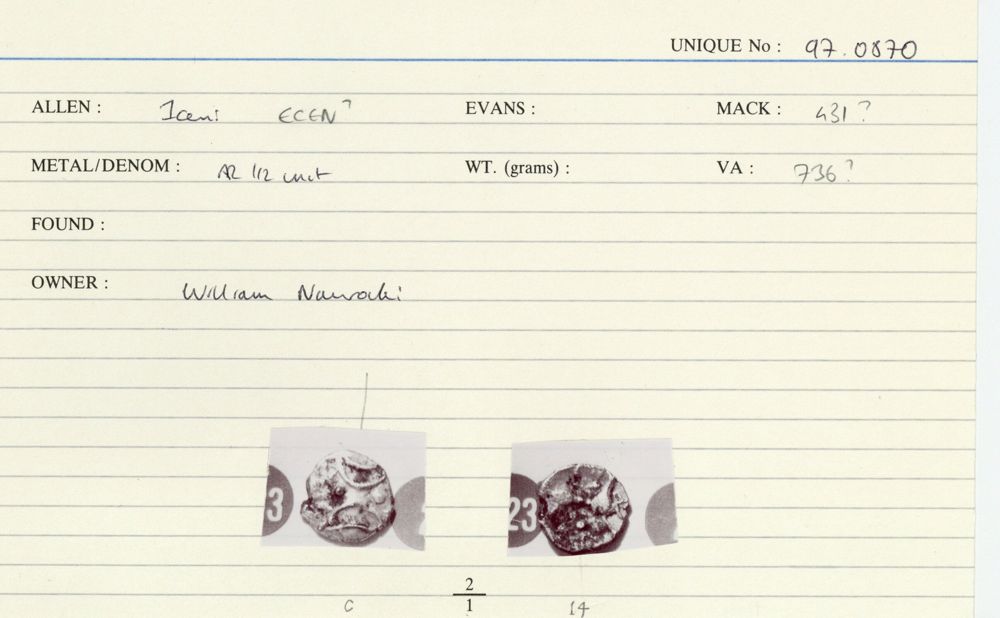 UNIQUE No : 97.0870
ALLEN : Iceni ECEN? EVANS : MACK : 431?
METAL/DENOM : AR 1/2 unit WT. (grams) : VA : 736?
FOUND :
OWNER : William Nawrocki
3 23
2
C 1 14